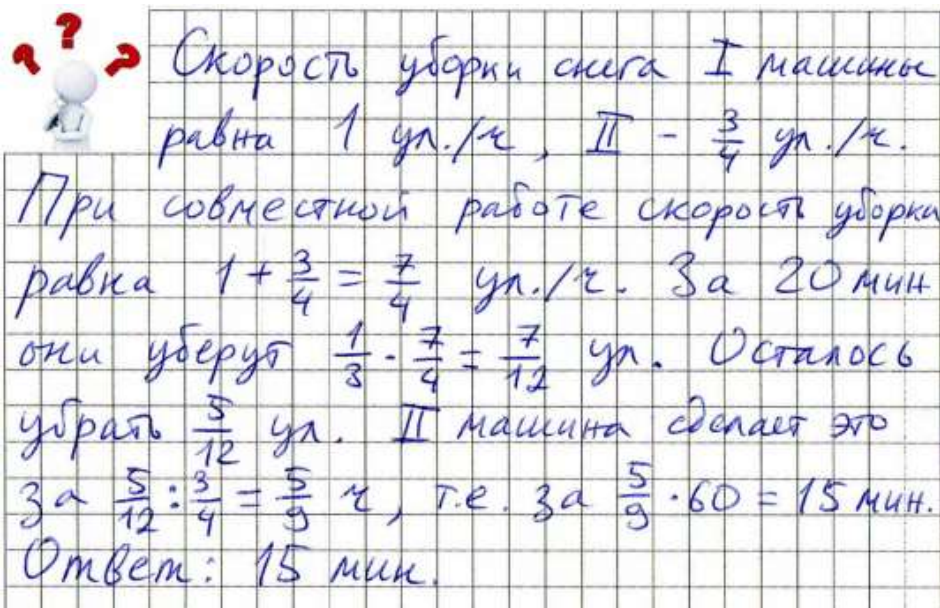 ? ? ?
Скорость уборки снега I машины
равна 1 ул./ч, II - 3/4 ул./ч.
При совместной работе скорость уборки
равна 1 + 3/4 = 7/4 ул./ч. За 20 мин
они уберут 1/3 · 7/4 = 7/12 ул. Осталось
убрать 5/12 ул. II машина сделает это
за 5/12 : 3/4 = 5/9 ч, т.е. за 5/9 · 60 = 15 мин.
Ответ: 15 мин.